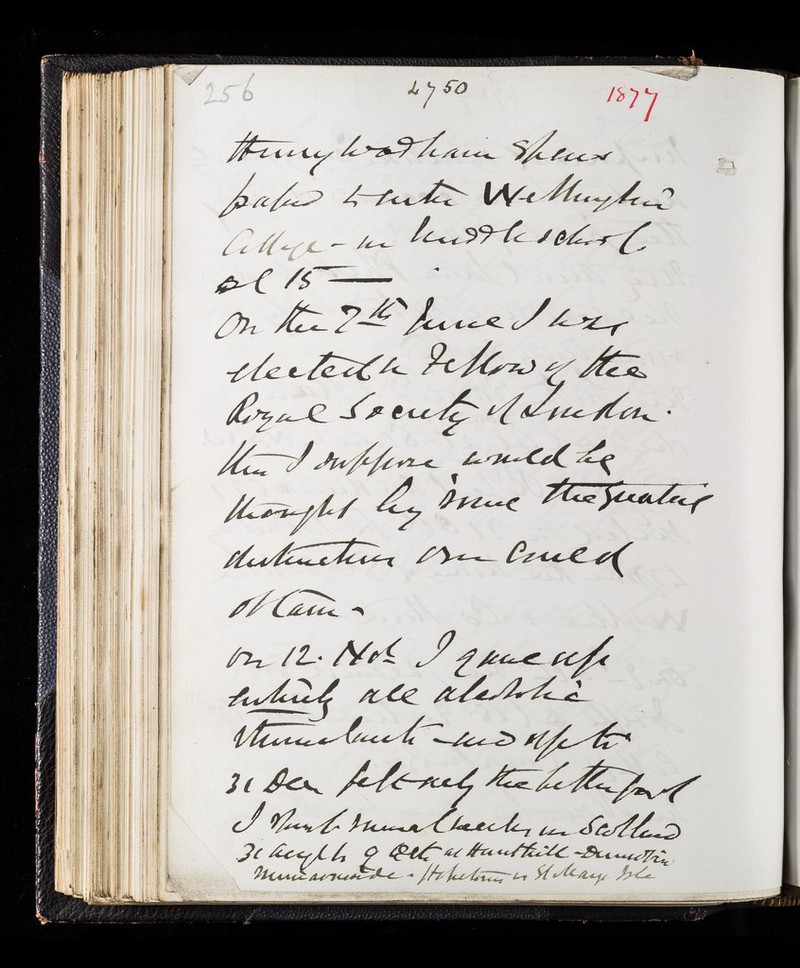 256 2750 1877
Henry Wadham
passed to enter Wellington
College - in middle school
at 15 —
On the 7th June I was
elected a Fellow of the
Royal Society of London.
this I suppose would be
thought by some the greatest
distinction one could
obtain -
on 12. Nov I gave up
entirely all alcoholic
stimulants - and up to
31 Dec felt only the better for it
I spent several weeks in Scotland
31 Aug to 9 Oct at Hunthill -
Hopetoun St Marys Isle